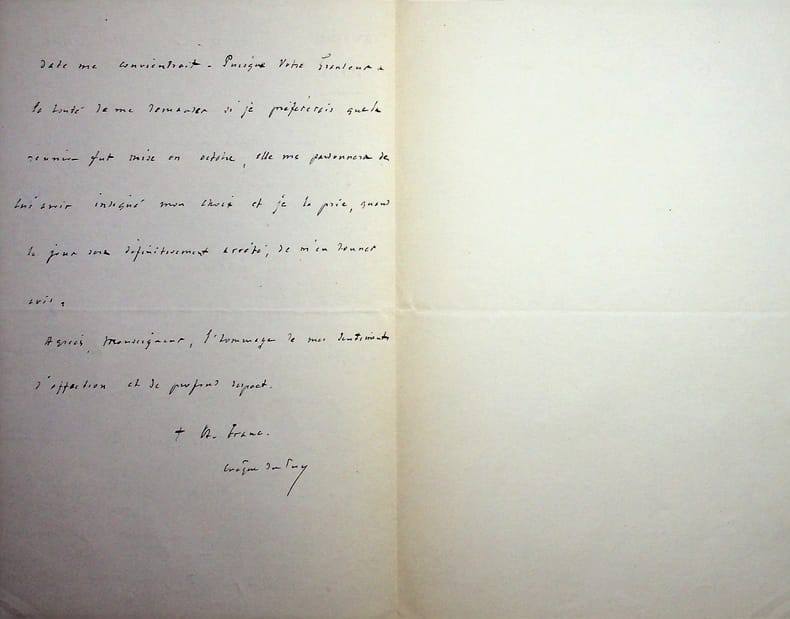 date me conviendrait. Puisque Votre Grandeur a
la bonté de me demander si je préférerais que la
réunion fut mise en octobre, elle me pardonnera de
lui avoir indiqué mon choix et je la prie, quand
le jour sera définitivement arrêté, de m'en donner
avis.
Agréez, Monseigneur, l'hommage de mes sentiments
d'affection et de profond respect.
+ Fr. 
évêque du Puy